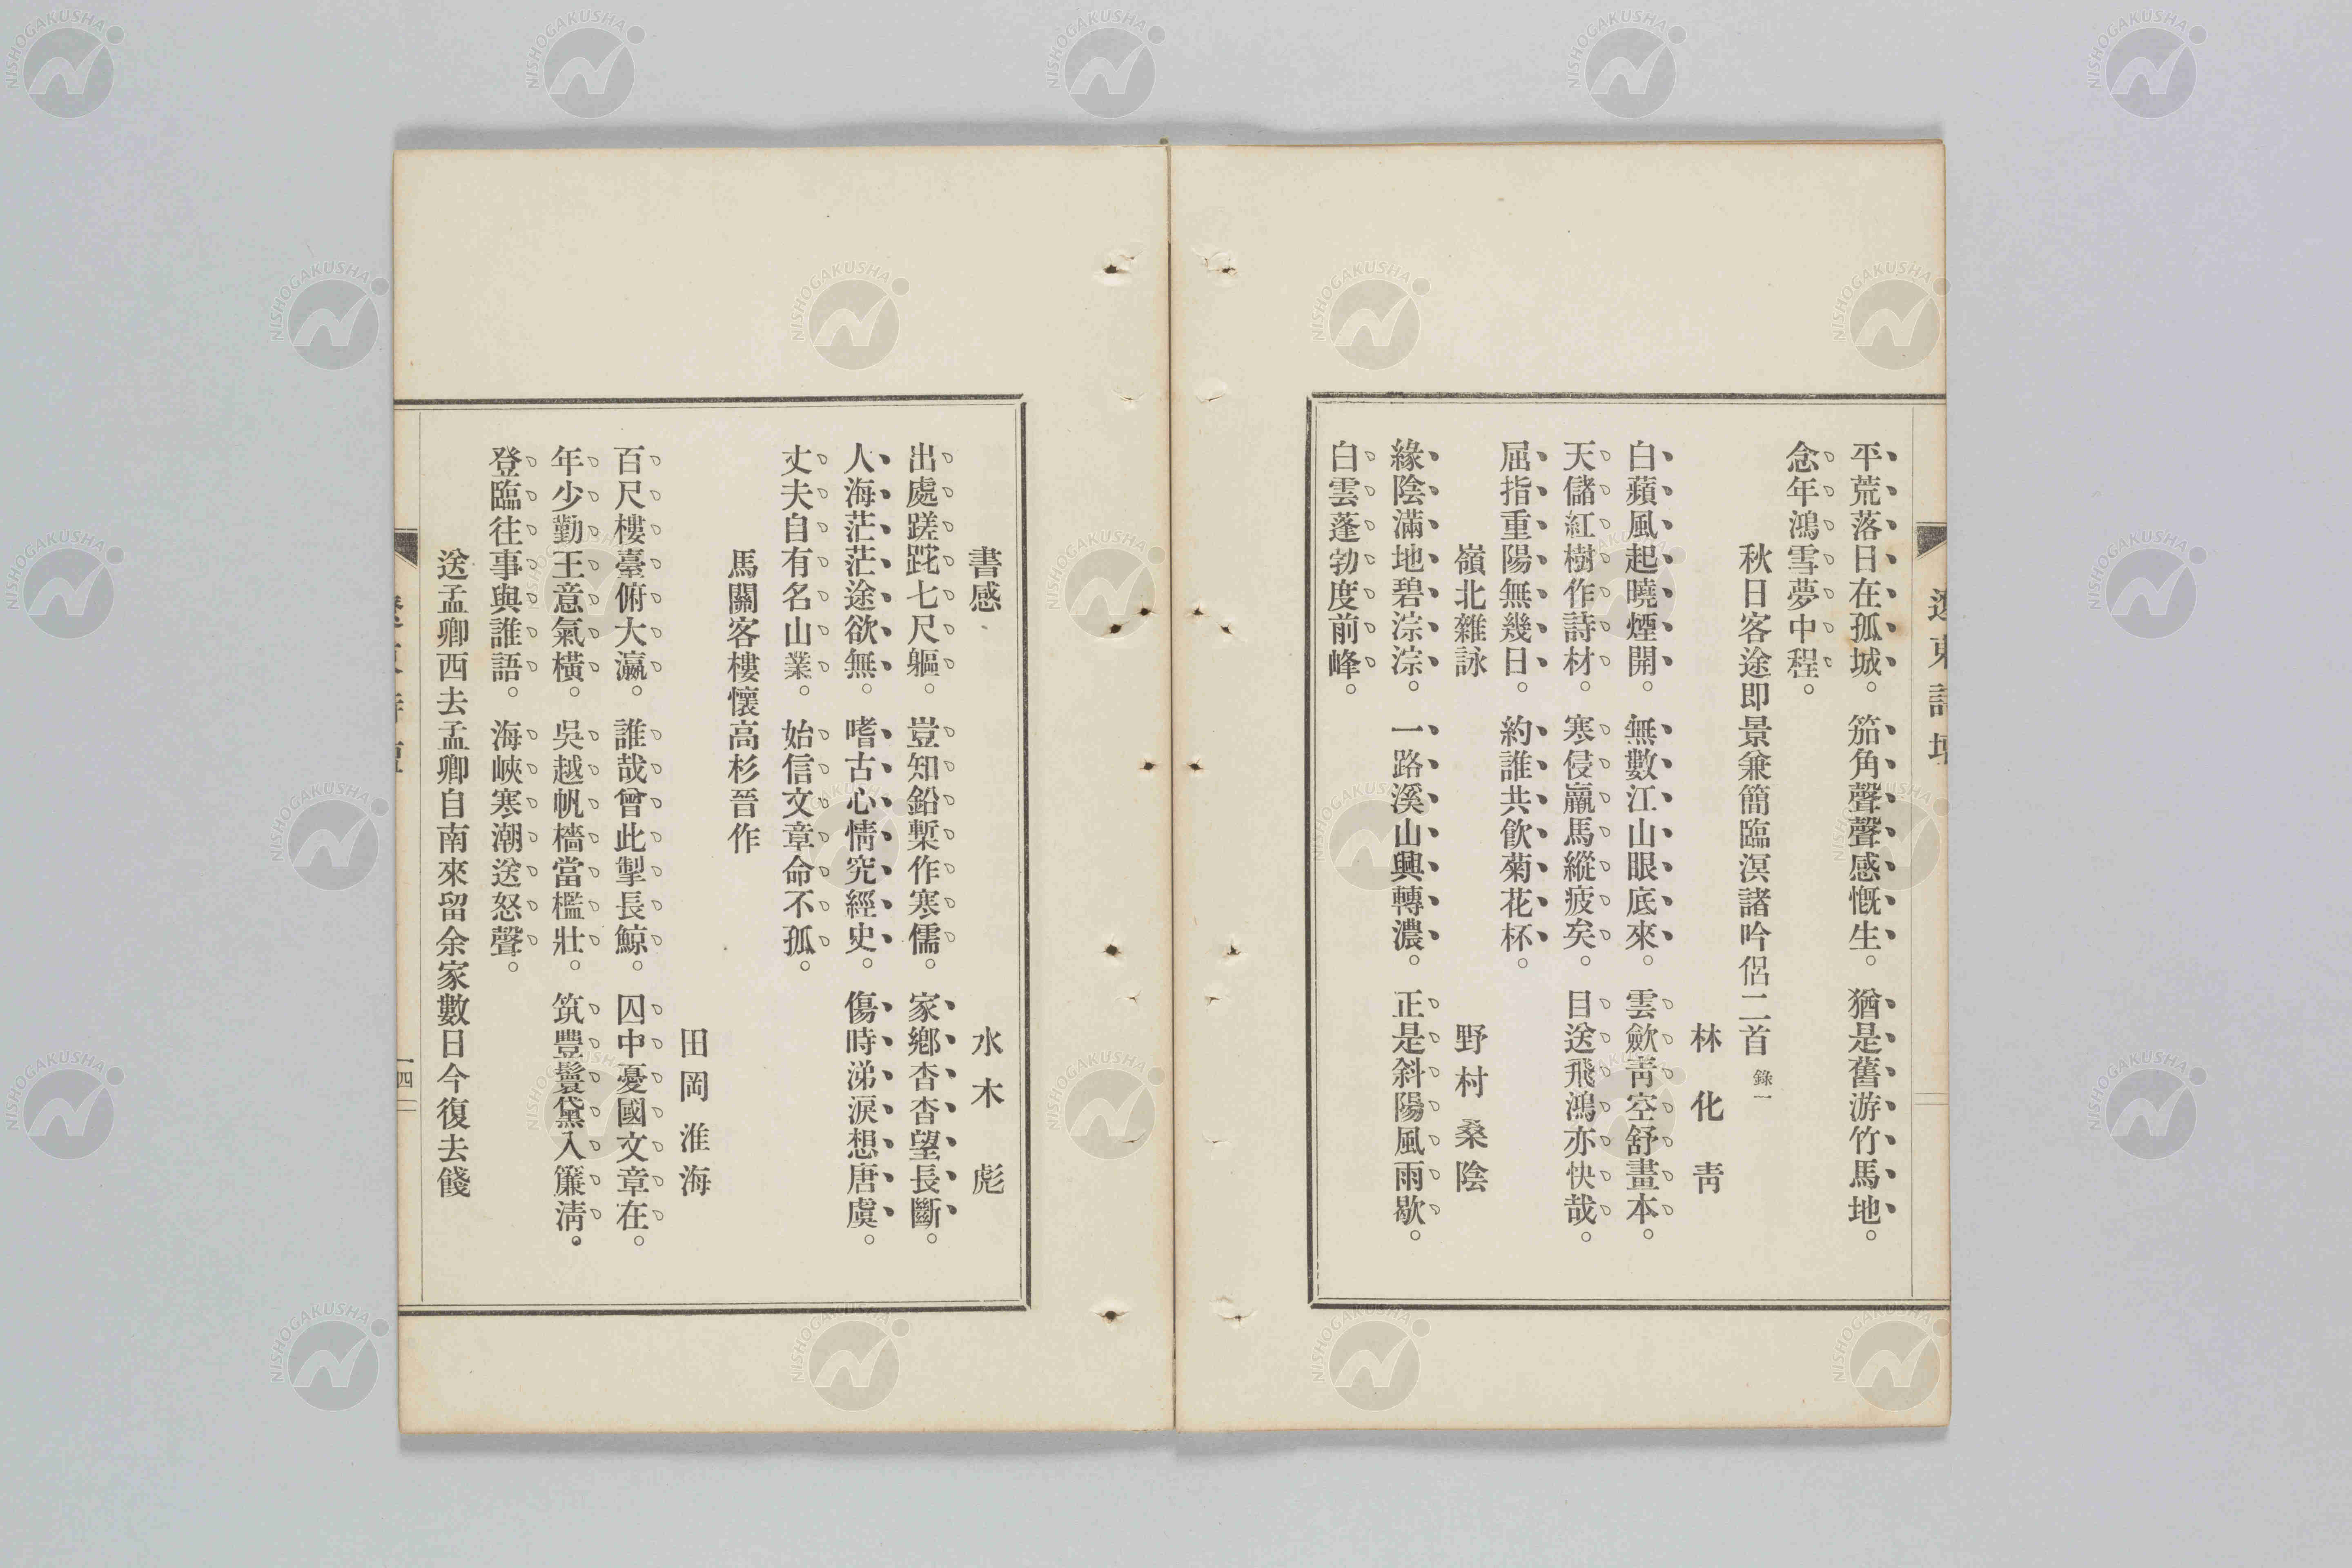 平荒落日在孤城。笳角聲聲感慨生。猶是舊游竹馬地。
念年鴻雪夢中程。
秋日客途即景兼簡臨溟諸吟侶二首 錄一
林化靑
白蘋風起曉煙開。無數江山眼底來。雲歛靑空舒畫本。
天儲紅樹作詩材。寒侵羸馬縱疲矣。目送飛鴻亦快哉。
屈指重陽無幾日。約誰共飮菊花杯。
嶺北雜詠 野村桑陰
緣陰滿地碧淙淙。一路溪山興轉濃。正是斜陽風雨歇。
白雲蓬勃度前峰。
書感 水木彪
出處蹉跎七尺軀。豈知鉛槧作寒儒。家鄕杳杳望長斷。
人海茫茫途欲無。嗜古心情究經史。傷時涕淚想唐虞。
丈夫自有名山業。始信文章命不孤。
馬關客樓懷高杉晉作
田岡淮海
百尺樓臺俯大瀛。誰哉曾此掣長鯨。囚中憂國文章在。
年少勤王意氣橫。吳越帆檣當檻壯。筑豐鬟黛入簾淸。
登臨往事與誰語。海峽寒潮送怒聲。
送孟卿西去孟卿自南來留余家數日今復去餞
四
NISHOGAKUSHA